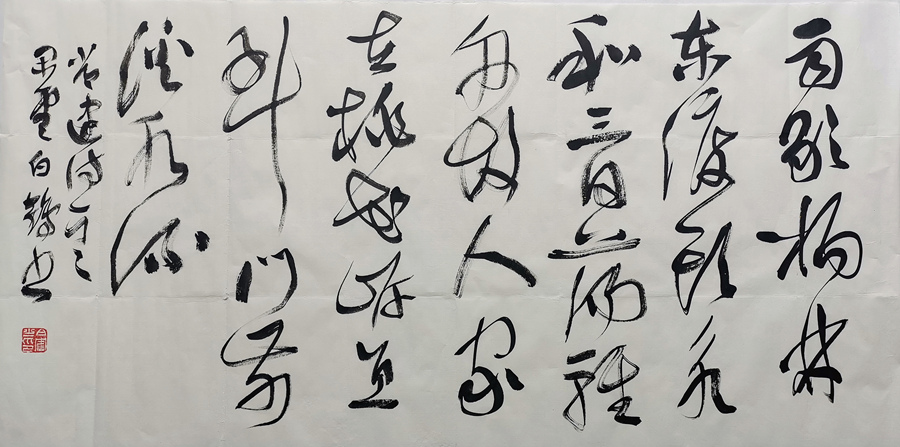 雨歇杨林
东渡头永
和三日荡轻
舟故人家
在桃花岸直
到门前
溪水流
常建诗
白鹤书